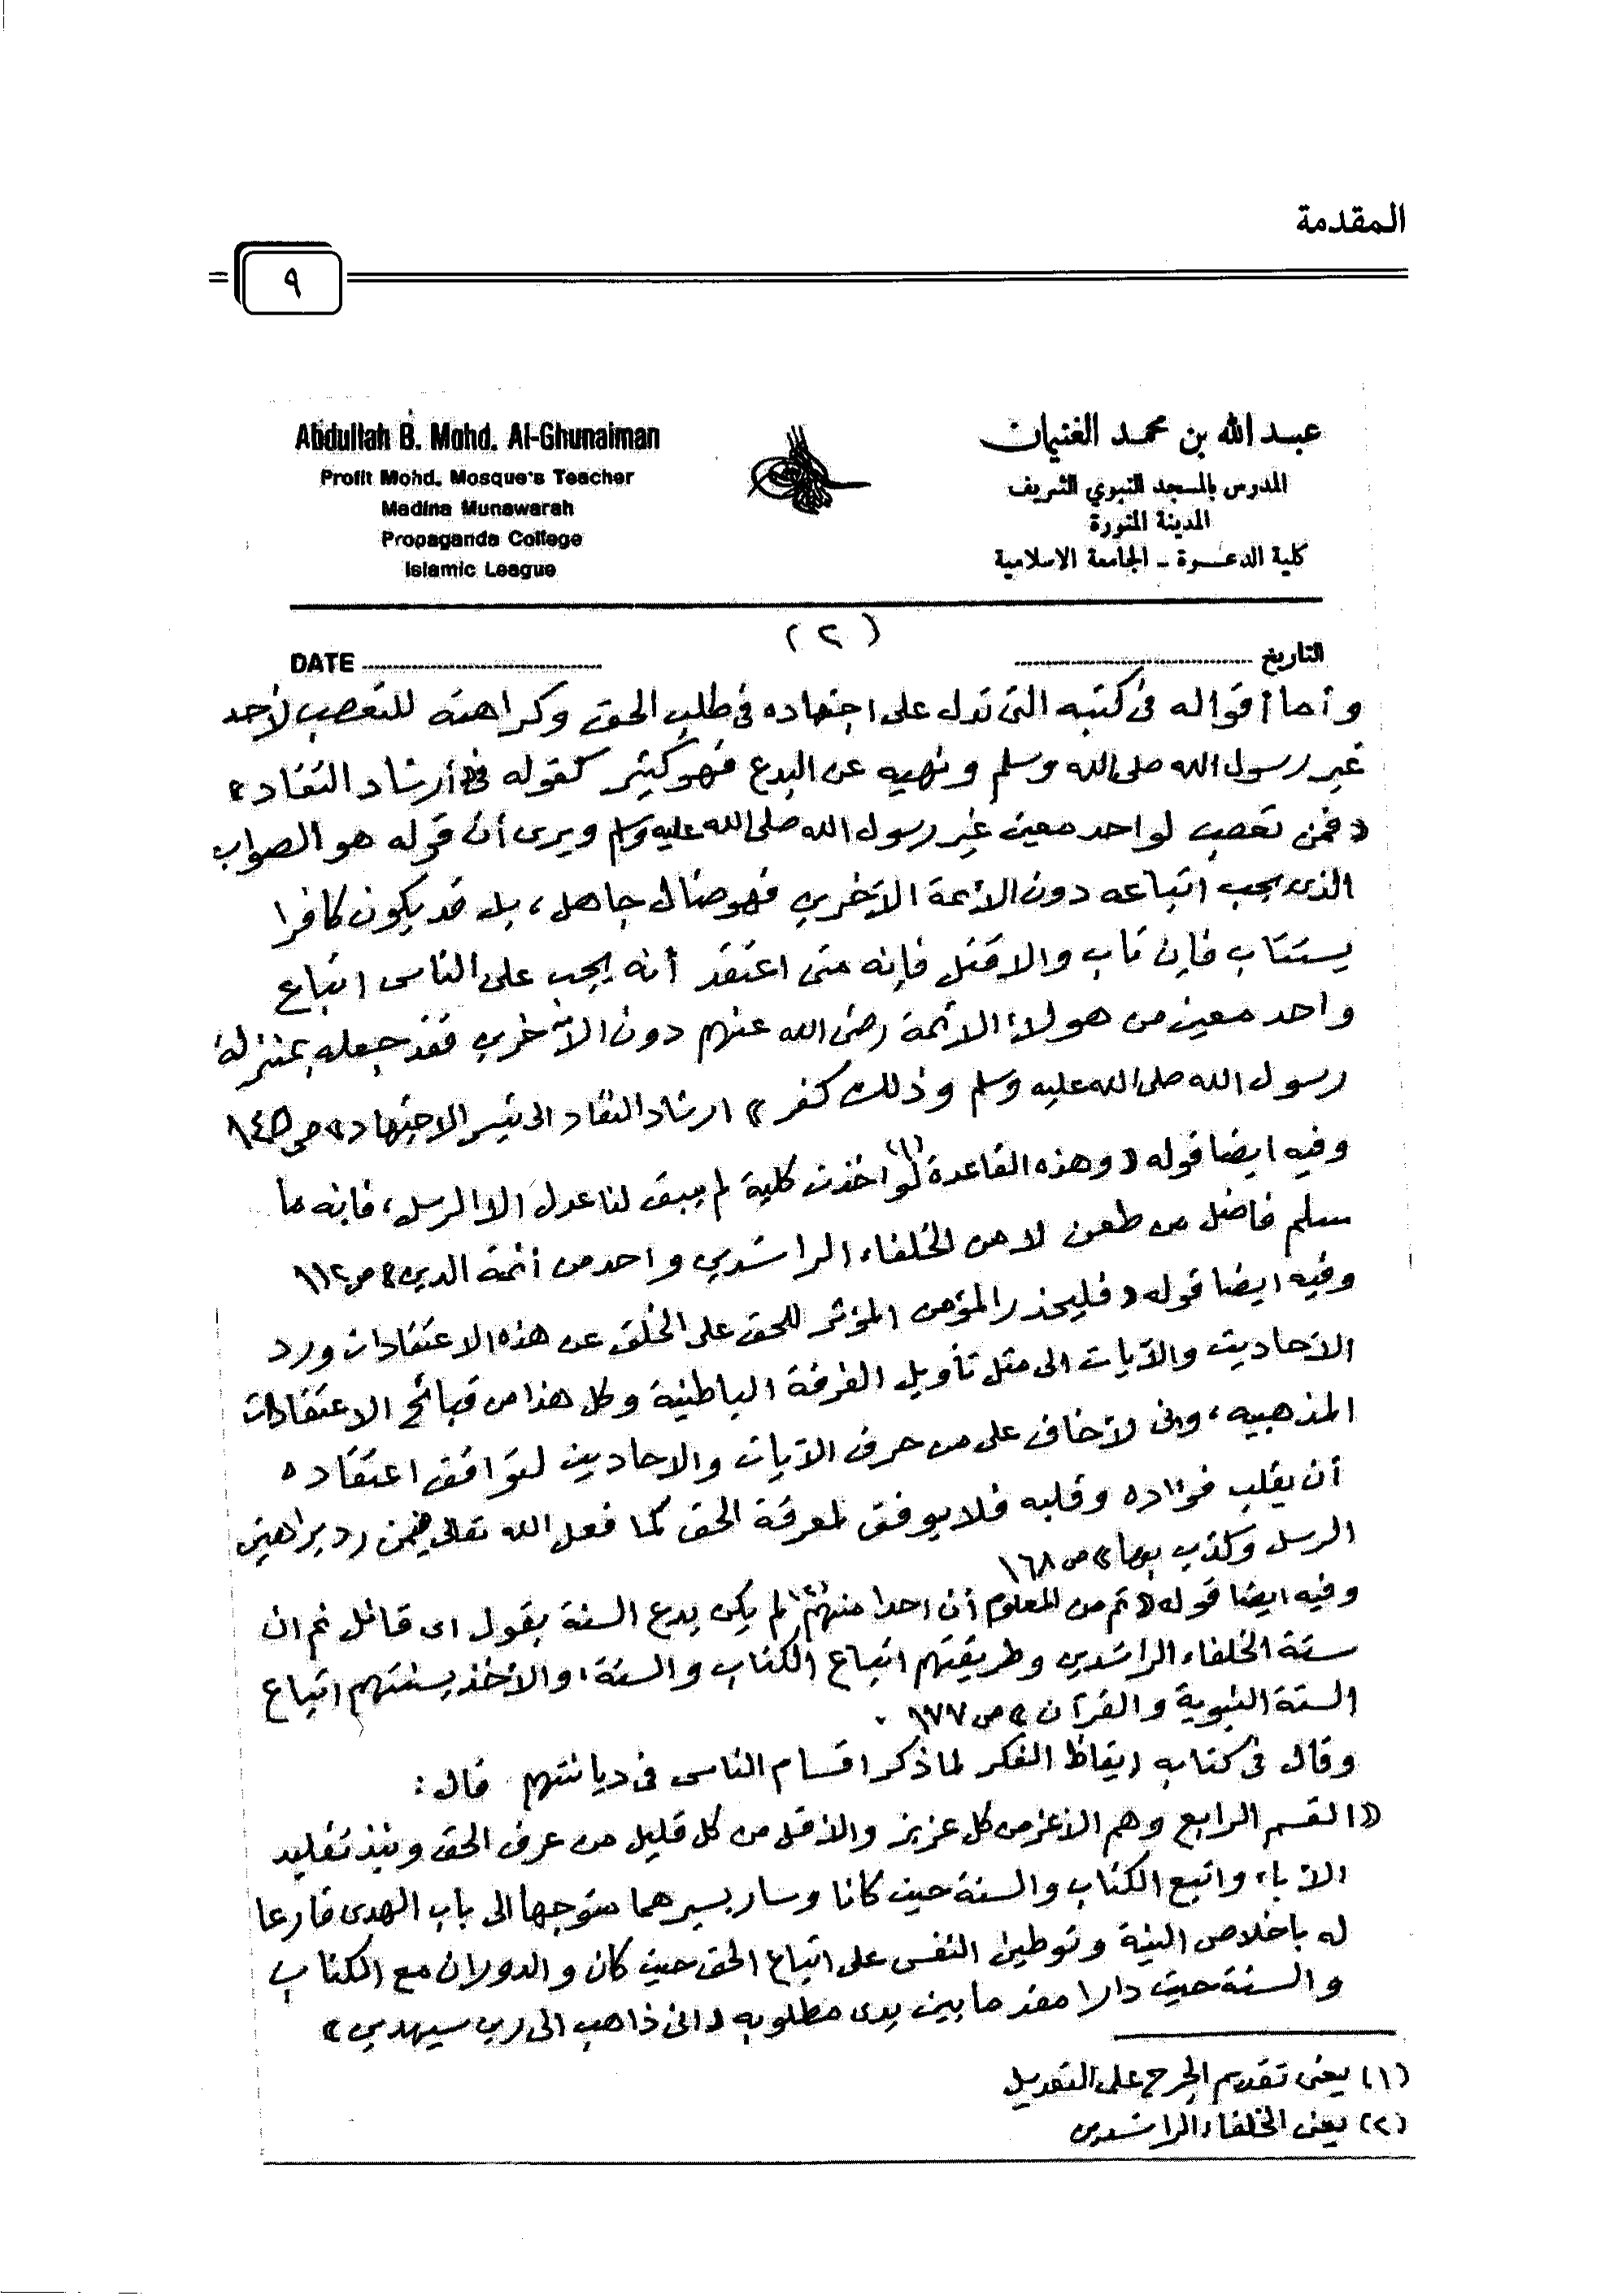 المقدمة
٩
عبد الله بن محمد الغنيمان
المدرس بالمسجد النبوي الشريف
المدينة المنورة
كلية الدعوة - الجامعة الاسلامية
Abdullah B. Mohd. Al-Ghunaiman
Profit Mohd. Mosque's Teacher
Madina Munawarah
Propaganda College
Islamic League
(٢)
التاريخ
DATE
وأما أقواله فى كتبه التى تدل على اجتهاده فى طلب الحق وكراهته للتعصب لأحد
غير رسول الله صلى الله وسلم ونهيه عن البدع فهو كثير كقوله فى «أرشاد النقاد»
«فمن تعصب لواحد معين غير رسول الله صلى الله عليه وسلم ويرى أن قوله هو الصواب
الذى يجب اتباعه دون الأئمة الآخرين فهو ضال جاهل، بل قد يكون كافرا
يستتاب فإن تاب والا قتل فإنه متى اعتقد أنه يجب على الناس اتباع
واحد معين من هولاء الائمة رضى الله عنهم دون الآخرين فقد جعله بمنزلة
رسول الله صلى الله عليه وسلم وذلك كفر» ارشاد النقاد الى تيسير الاجتهاد» ص١٤٥
وفيه ايضا قوله «وهذه القاعدة(١) لو اخذت كلية لم يبق لنا عدل الا الرسل، فانه ما
سلم فاضل من طعن لا من الخلفاء الراشدين واحد من أئمة الدين» ص١١٢
وفيه ايضا قوله «فليحذر المؤمن المؤثر للحق على الخلق عن هذه الاعتقادات ورد
الأحاديث والآيات الى مثل تأويل الفرقة الباطنية وكل هذا من قبائح الاعتقادات
المذهبيه، وانى لأخاف على من حرف الآيات والاحاديث لتوافق اعتقاده
أن يقلب فؤاده وقلبه فلا يوفق لمعرفة الحق كما فعل الله تعالى فيمن رد براهين
الرسل وكذب بها» ص١٦٨
وفيه ايضا قوله «ثم من المعلوم أن احدا منهم(٢) لم يكن يدع السنة بقول اى قائل ثم ان
سنة الخلفاء الراشدين وطريقتهم اتباع الكتاب والسنة، والأخذ بسنتهم اتباع
السنة النبوية والقرآن» ص١٧٧.
وقال فى كتابه ايقاظ الفكر لما ذكر اقسام الناس فى ديانتهم قال:
«القسم الرابع وهم الأعز من كل عزيز والأقل من كل قليل من عرف الحق ونبذ تقليد
الآباء واتبع الكتاب والسنة حيث كانا وسار بسيرهما متوجها الى باب الهدى قارعا
له باخلاص النية وتوطين النفس على اتباع الحق حيث كان والدوران مع الكتاب
والسنة حيث دارا مقدما بين يدى مطلوبه «انى ذاهب الى ربى سيهدين»
(١) يعنى تقديم الجرح على التعديل
(٢) يعنى الخلفاء الراشدين